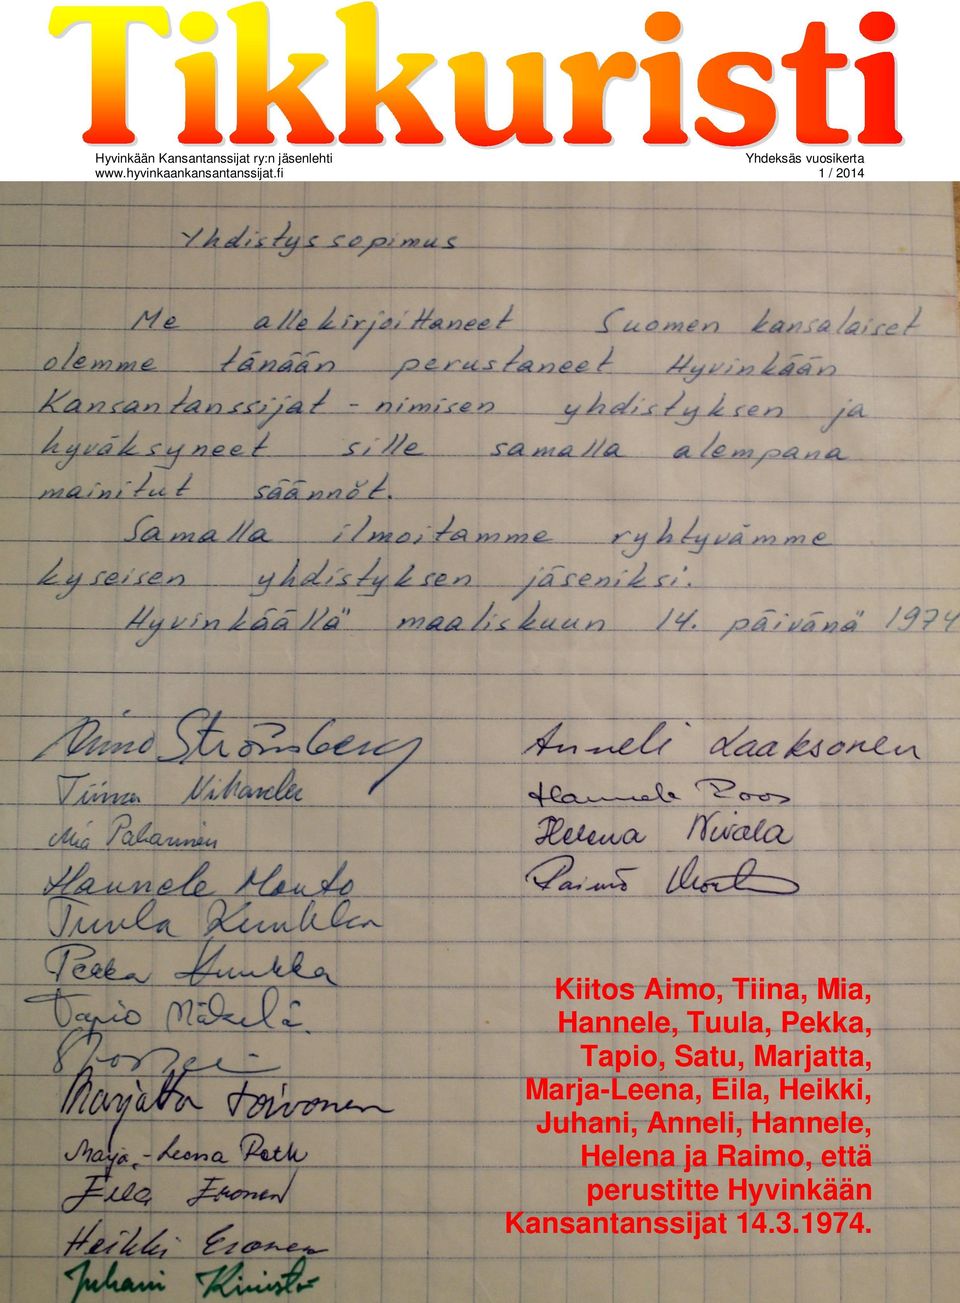 Tikkuristi
Hyvinkään Kansantanssijat ry:n jäsenlehti
Yhdeksäs vuosikerta
www.hyvinkaankansantanssijat.fi
1 / 2014
Yhdistyssopimus
Me allekirjoittaneet Suomen kansalaiset
olemme tänään perustaneet Hyvinkään
Kansantanssijat - nimisen yhdistyksen ja
hyväksyneet sille samalla alempana
mainitut säännöt.
Samalla ilmoitamme ryhtyvämme
kyseisen yhdistyksen jäseniksi.
Hyvinkäällä maaliskuun 14. päivänä 1974
Aimo Strömberg
Tiina
Mia
Hannele Monto
Tuula
Pekka
Tapio Mäkelä
Marjatta Toivonen
Marja-Leena
Eila Eronen
Heikki Eronen
Juhani
Anneli Laaksonen
Hannele Roos
Helena Nivala
Raimo
Kiitos Aimo, Tiina, Mia,
Hannele, Tuula, Pekka,
Tapio, Satu, Marjatta,
Marja-Leena, Eila, Heikki,
Juhani, Anneli, Hannele,
Helena ja Raimo, että
perustitte Hyvinkään
Kansantanssijat 14.3.1974.